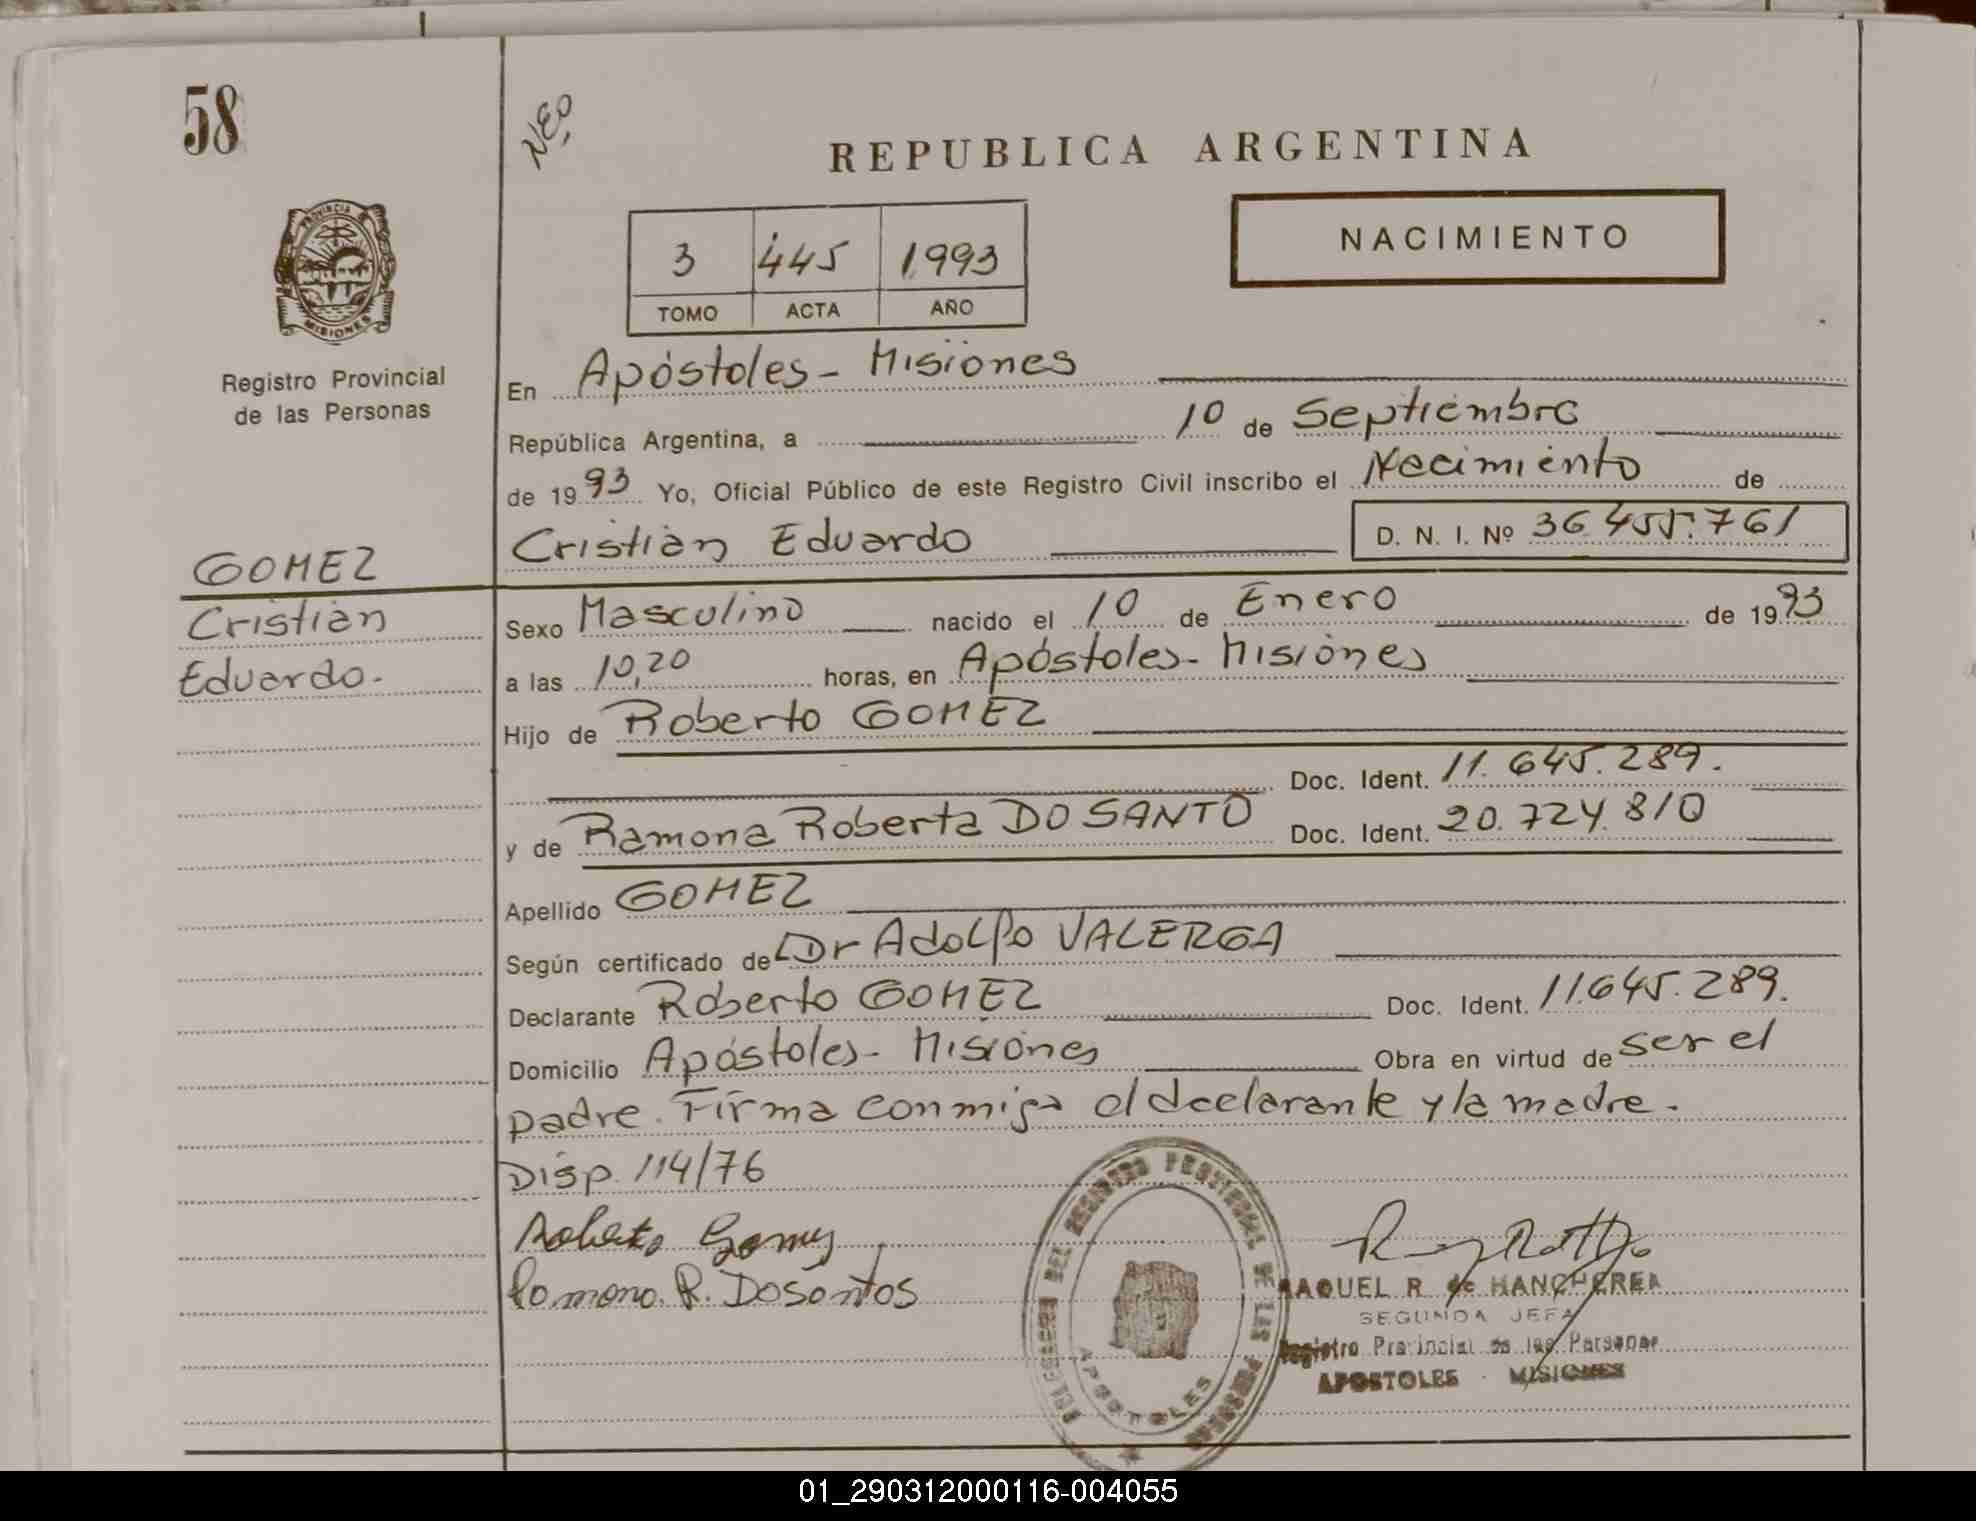 58
NEO
REPUBLICA ARGENTINA
PROVINCIA DE
MISIONES
3 445 1993
TOMO ACTA AÑO
NACIMIENTO
Registro Provincial
de las Personas
En Apóstoles - Misiones
República Argentina, a 10 de Septiembre
de 1993 Yo, Oficial Público de este Registro Civil inscribo el Nacimiento de
Cristian Eduardo D. N. I. Nº 36.455.761
GOMEZ
Cristian
Eduardo.
Sexo Masculino nacido el 10 de Enero de 1993
a las 10,20 horas, en Apóstoles - Misiones
Hijo de Roberto GOMEZ
Doc. Ident. 11.645.289.
y de Ramona Roberta DO SANTO Doc. Ident. 20.724.810
Apellido GOMEZ
Según certificado de Dr Adolfo VALERGA
Declarante Roberto GOMEZ Doc. Ident. 11.645.289.
Domicilio Apóstoles - Misiones Obra en virtud de ser el
padre. Firma conmigo el declarante y la madre.
Disp. 114/76
Roberto Gomez
Romona. R. Dosantos
DEL REGISTRO PROVINCIAL DE LAS PERSONAS
APOSTOLES
RAQUEL R. de HANCHEREA
SEGUNDA JEFA
Registro Provincial de las Personas
APOSTOLES - MISIONES
01_290312000116-004055